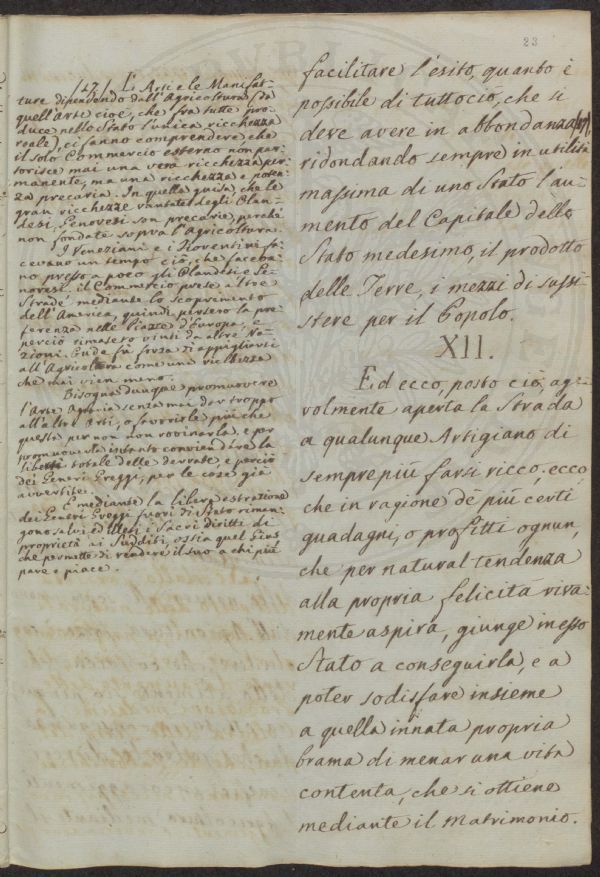 23
(27) L'Arti e le Manifat-
ture dipendendo dall'Agricoltura (da
quell'Arte cioè, che fra tutte pro-
duce nello Stato l'unica ricchezza
reale), ci fanno comprendere che
il solo Commercio esterno non par-
torisce mai una vera ricchezza per-
manente, ma una ricchezza e poten-
za precaria. In quella guisa, che le
gran ricchezze vantate degli Olan-
desi, Genovesi son precarie, perchè
non fondate sopra l'Agricoltura.
I Veneziani e i Fiorentini fa-
cevano un tempo ciò, che faceva-
no presso a poco gli Olandesi e Ge-
novesi. il Commercio prese altre
Strade mediante lo scoprimento
dell'America, quindi persero la pre-
ferenza nelle Piazze d'Europa, e
perciò rimasero vinti da altre Na-
zioni. Onde fù forza di appigliarsi
all'Agricoltura come una ricchezza
che mai vien meno.
Bisogna dunque promuovere
l'Arte Agraria senza mai dar troppo
all'altre Arti, o favorirle più che
questa per non rovinarla, e per
promuoverla intanto converrà dare la
libertà totale delle derrate, e perciò
dei Generi Greggi, per le cose già
avvertite.
E mediante la libera estrazione
dei Generi Greggi fuori di Stato riman-
gono salvi ed illesi i Sacri diritti di
proprietà ai Sudditi, ossia quel Gius
che permette di vendere il suo a chi più
pare e piace.
facilitare l'esito, quanto è
possibile di tuttociò, che si
deve avere in abbondanza (27)
ridondando sempre in utilità
massima di uno Stato l'au-
mento del Capitale dello
Stato medesimo, il prodotto
delle Terre, i mezzi di sussi-
stere per il Popolo.
XII.
Ed ecco, posto ciò, age-
volmente aperta la Strada
a qualunque Artigiano di
sempre più farsi ricco, ecco,
che in ragione de più certi
guadagni, o profitti ognun,
che per natural tendenza
alla propria felicità viva-
mente aspira, giunge in esso
Stato a conseguirla, e a
poter sodisfare insieme
a quella innata propria
brama di menar una vita
contenta, che si ottiene
mediante il Matrimonio.